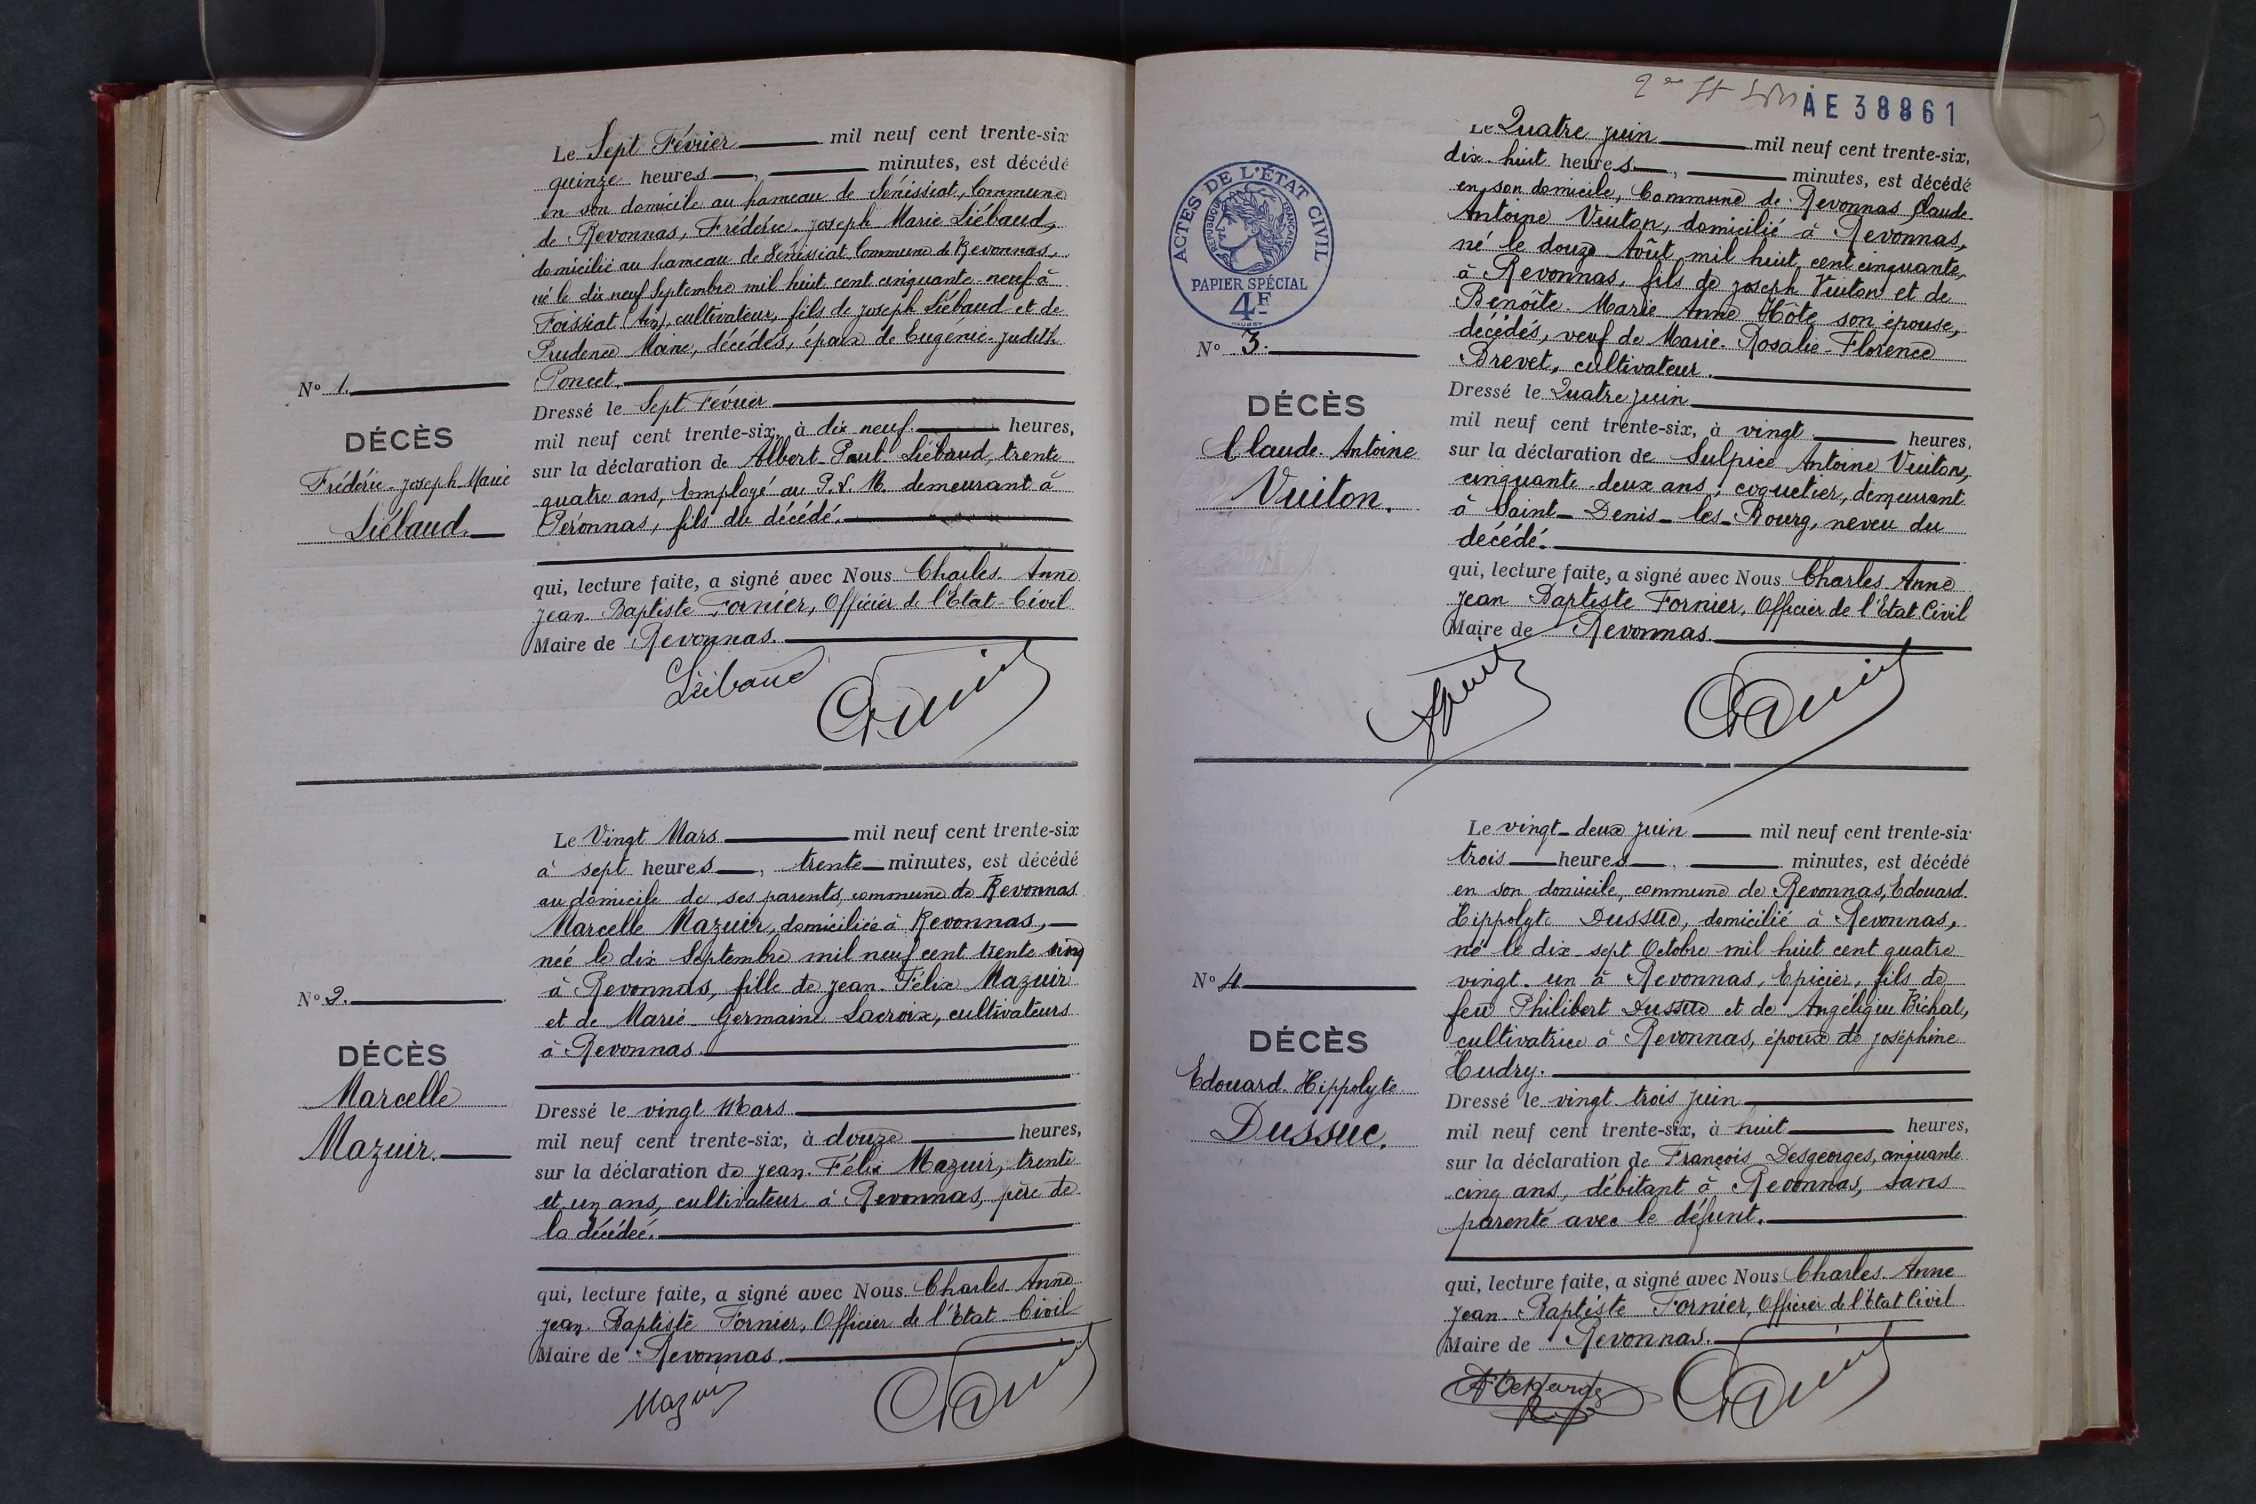 Le Sept Février mil neuf cent trente-six
quinze heures, minutes, est décédé
en son domicile au hameau de Sénissiat, Commune
de Revonnas, Frédéric-Joseph Marie Liébaud,
domicilié au hameau de Sénissiat Commune de Revonnas,
né le dix neuf Septembre mil huit cent cinquante neuf à
Foissiat (Ain), cultivateur, fils de Joseph Liébaud et de
Prudence Marie, décédés, époux de Eugénie-Judith
Poncet.
Nº 1.
DÉCÈS
Frédéric-Joseph Marie
Liébaud.
Dressé le Sept Février
mil neuf cent trente-six, à dix neuf heures,
sur la déclaration de Albert-Paul Liébaud, trente
quatre ans, Employé au P.L.M. demeurant à
Péronnas, fils du décédé.
qui, lecture faite, a signé avec Nous Charles Anne
Jean-Baptiste Fornier, Officier de l'Etat-Civil
Maire de Revonnas.
Liébaud
Le Vingt Mars mil neuf cent trente-six
à sept heures, trente minutes, est décédé
au domicile de ses parents, commune de Revonnas
Marcelle Mazuir, domiciliée à Revonnas,
née le dix Septembre mil neuf cent trente cinq
à Revonnas, fille de Jean-Félix Mazuir
et de Marie-Germaine Lacroix, cultivateurs
à Revonnas.
Nº 2.
DÉCÈS
Marcelle
Mazuir.
Dressé le vingt Mars
mil neuf cent trente-six, à douze heures,
sur la déclaration de Jean-Félix Mazuir, trente
et un ans, cultivateur à Revonnas, père de
la décédée.
qui, lecture faite, a signé avec Nous Charles Anne
Jean-Baptiste Fornier, Officier de l'Etat Civil
Maire de Revonnas.
Mazuir
AE 38861
ACTES DE L'ÉTAT CIVIL
REPUBLIQUE FRANÇAISE
PAPIER SPÉCIAL
4F
Le Quatre Juin mil neuf cent trente-six,
dix-huit heures, minutes, est décédé
en son domicile, Commune de Revonnas Claude
Antoine Vuiton, domicilié à Revonnas,
né le douze Août mil huit cent cinquante,
à Revonnas, fils de Joseph Vuiton et de
Benoîte-Marie Anne Hôte son épouse,
décédés, veuf de Marie-Rosalie-Florence
Brevet, cultivateur.
Nº 3.
DÉCÈS
Claude-Antoine
Vuiton.
Dressé le Quatre Juin
mil neuf cent trente-six, à vingt heures,
sur la déclaration de Sulpice Antoine Vuiton,
cinquante-deux ans, coquetier, demeurant
à Saint-Denis-les-Bourg, neveu du
décédé.
qui, lecture faite, a signé avec Nous Charles-Anne
Jean Baptiste Fornier, Officier de l'Etat Civil
Maire de Revonnas.
Le vingt-deux Juin mil neuf cent trente-six
trois heures, minutes, est décédé
en son domicile, commune de Revonnas, Edouard
Hippolyte Dussuc, domicilié à Revonnas,
né le dix-sept Octobre mil huit cent quatre
vingt-un à Revonnas, Epicier, fils de
feu Philibert Dussuc et de Angélique Bichat,
cultivatrice à Revonnas, époux de Joséphine
Hudry.
Nº 4
DÉCÈS
Edouard-Hippolyte
Dussuc.
Dressé le vingt trois Juin
mil neuf cent trente-six, à huit heures,
sur la déclaration de François Desgeorges, cinquante
cinq ans, débitant à Revonnas, sans
parenté avec le défunt.
qui, lecture faite, a signé avec Nous Charles-Anne
Jean-Baptiste Fornier, Officier de l'Etat Civil
Maire de Revonnas.